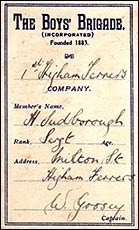 THE BOYS' BRIGADE.
(INCORPORATED)
Founded 1883.
1st Higham Ferrers
COMPANY.
Member's Name,
H. Sudborough
Rank, Sergt Age,
Address, Milton St
Higham Ferrers
W. Goosey
Captain.